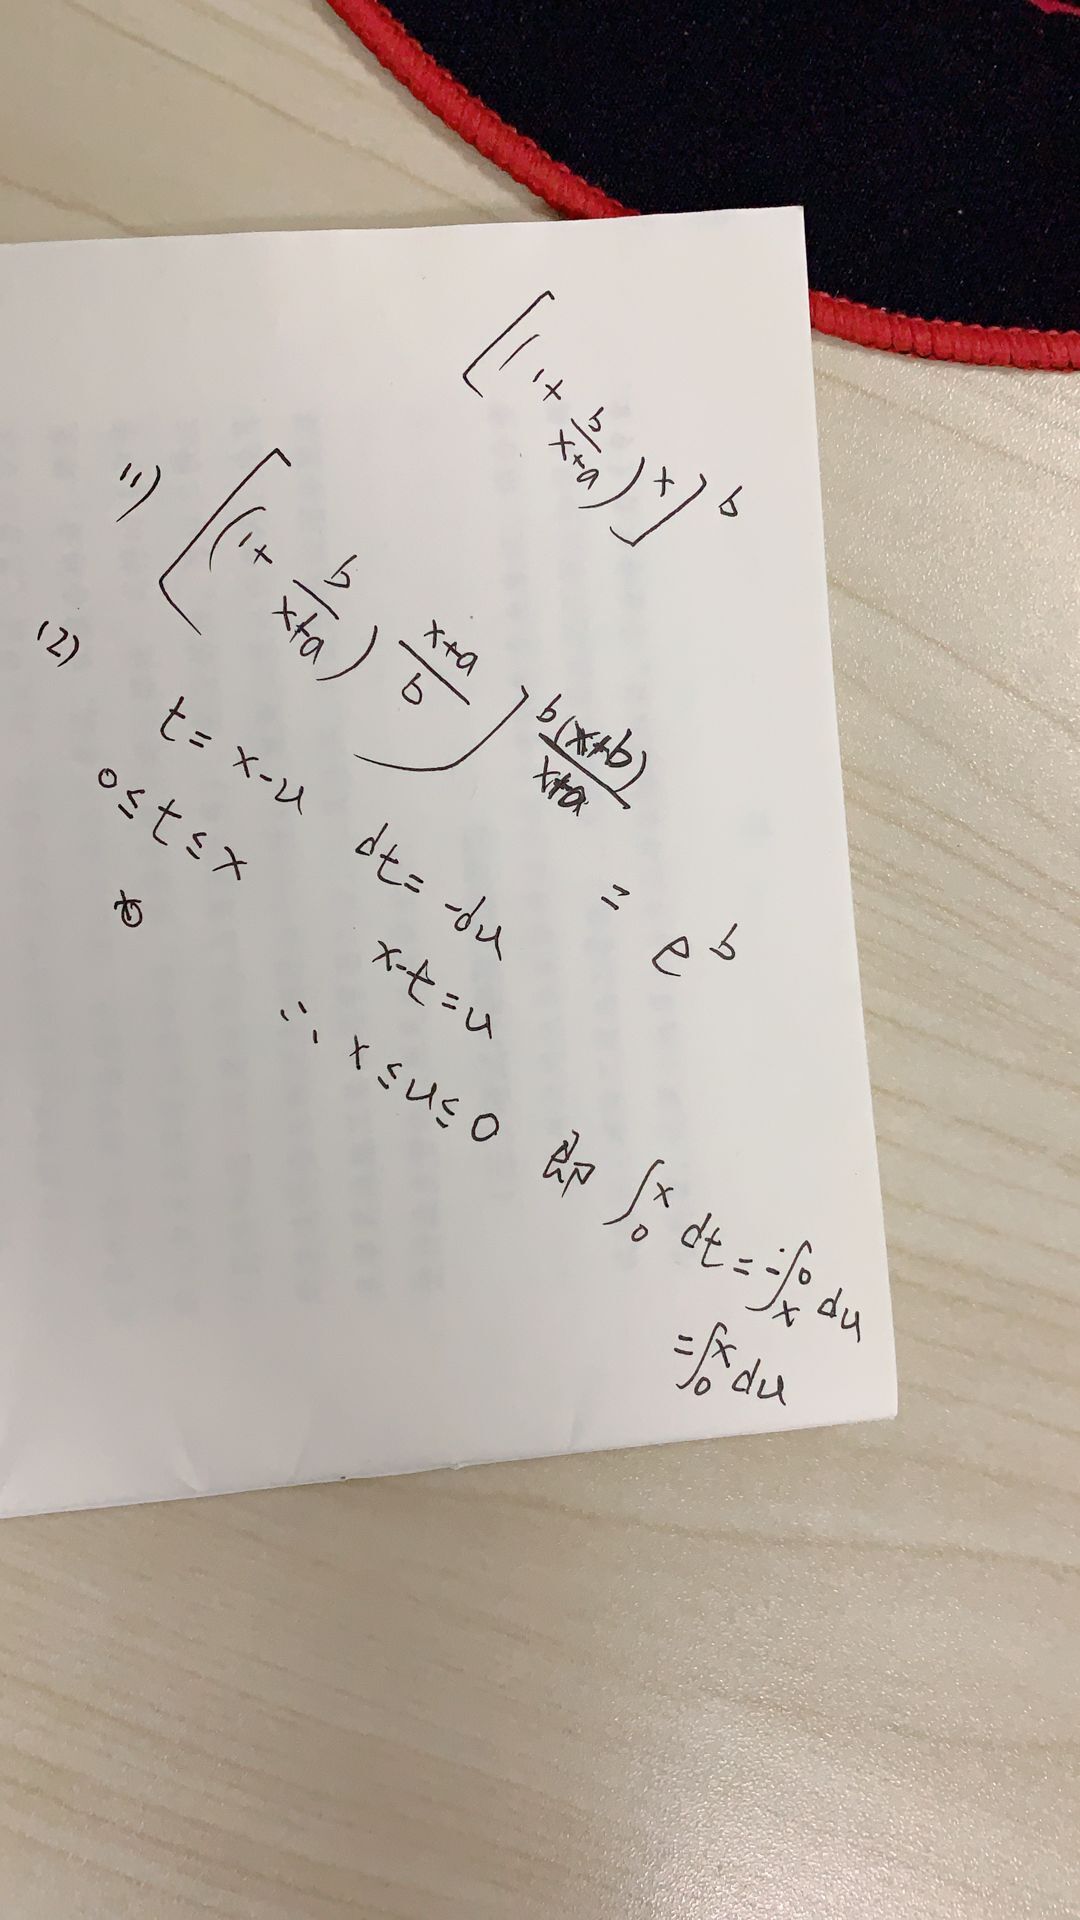 [(1+\frac{b}{x+a})^x]^b
(1) [(1+\frac{b}{x+a})^{\frac{x+a}{b}}]^{\frac{b(x+b)}{x+a}} = e^b
(2) t=x-u dt=-du
0≤t≤x x-t=u
∴ x≤u≤0 即 \int_0^x dt=-\int_x^0 du
=\int_0^x du